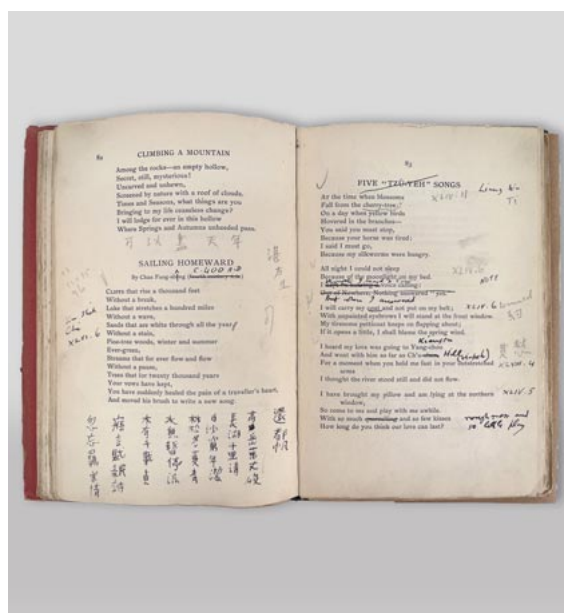 82
CLIMBING A MOUNTAIN
Among the rocks—an empty hollow,
Secret, still, mysterious!
Uncarved and unhewn,
Screened by nature with a roof of clouds.
Times and Seasons, what things are you
Bringing to my life ceaseless change?
I will lodge for ever in this hollow
Where Springs and Autumns unheeded pass.
可以盡天年
SAILING HOMEWARD
By Chan Fang-shēng
C. 400 A.D
CLIFFS that rise a thousand feet
Without a break,
Lake that stretches a hundred miles
Without a wave,
Sands that are white through all the year,
Without a stain,
Pine-tree woods, winter and summer
Ever-green,
Streams that for ever flow and flow
Without a pause,
Trees that for twenty thousand years
Your vows have kept,
You have suddenly healed the pain of a traveller's heart,
And moved his brush to write a new song.
XLIV. 6
還都帆
高岳萬丈峻
長湖千里清
白沙窮年潔
林松冬夏青
水無暫停流
木有千載貞
寤言賦新詩
忽忘羈客情
83
FIVE "TZŬ-YEH" SONGS
At the time when blossoms
Fall from the cherry-tree:
On a day when yellow birds
Hovered in the branches—
You said you must stop,
Because your horse was tired:
I said I must go,
Because my silkworms were hungry.
All night I could not sleep
Because of the moonlight on my bed.
I kept on hearing a voice calling:
Out of Nowhere, Nothing answered "yes."
I will carry my coat and not put on my belt;
With unpainted eyebrows I will stand at the front window.
My tiresome petticoat keeps on flapping about;
If it opens a little, I shall blame the spring wind.
Kiangsu
I heard my love was going to Yang-chou
And went with him as far as Ch'u-
For a moment when you held me fast in your outstretched
arms
I thought the river stood still and did not flow.
I have brought my pillow and am lying at the northern
window,
So come to me and play with me awhile.
With so much quarrelling and so few kisses
How long do you think our love can last?
XLIV. 11
XLIV. 6
XLIV. 6
XLVIII. 4
XLIV. 5